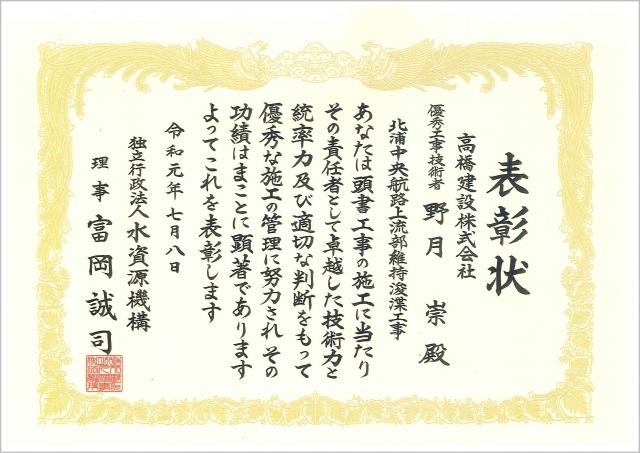 表彰状
高橋建設株式会社
優秀工事技術者 野月 崇 殿
北浦中央航路上流部維持浚渫工事
あなたは頭書工事の施工に当たり
その責任者として卓越した技術力と
統率力及び適切な判断をもって
優秀な施工の管理に努力され その
功績はまことに顕著であります
よってこれを表彰します
令和元年七月八日
独立行政法人水資源機構
理事 富岡誠司